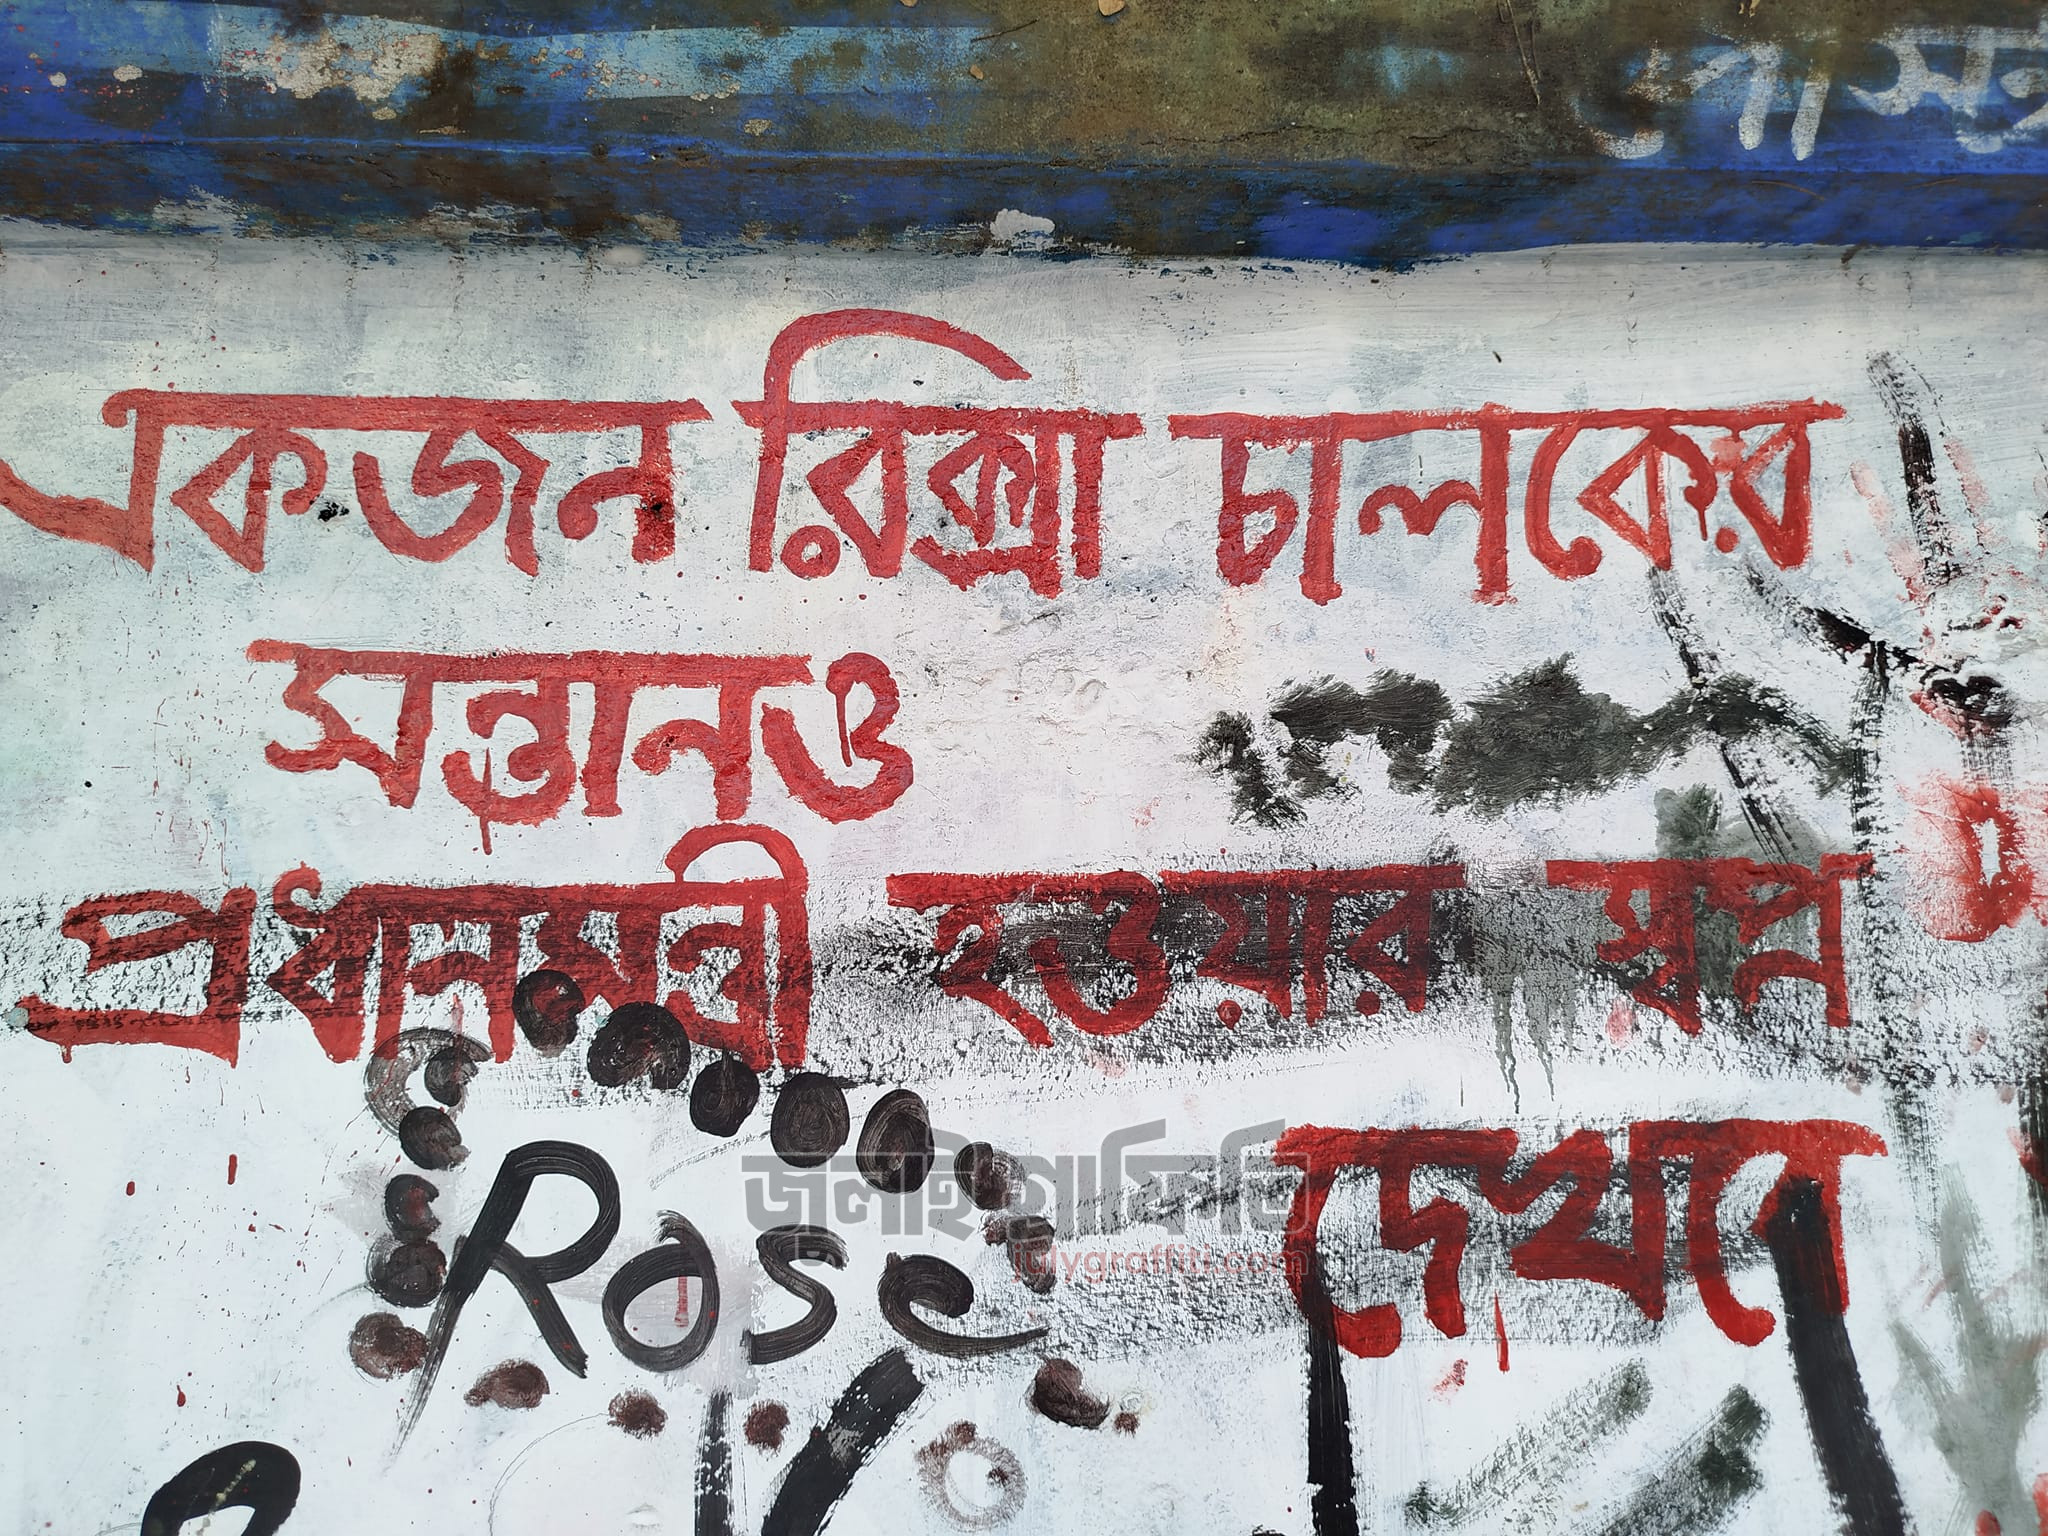 একজন রিক্সা চালকের
সন্তানও
প্রধানমন্ত্রী হওয়ার স্বপ্ন
দেখবে
Rose
জুলাই গ্রাফিতি
julygraffiti.com